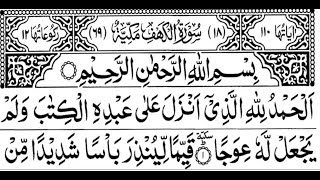 اٰیَاتُهَا ١١٠ (١٨) سُوْرَةُ الْكَهْفِ مَكِّیَّةٌ (٦٩) رُكُوْعَاتُهَا ١٢
بِسْمِ اللّٰهِ الرَّحْمٰنِ الرَّحِیْمِ
اَلْحَمْدُ لِلّٰهِ الَّذِیْۤ اَنْزَلَ عَلٰى عَبْدِهِ الْكِتٰبَ وَلَمْ
یَجْعَلْ لَّهٗ عِوَجًا ١ سكتة قَیِّمًا لِّیُنْذِرَ بَاْسًا شَدِیْدًا مِّنْ